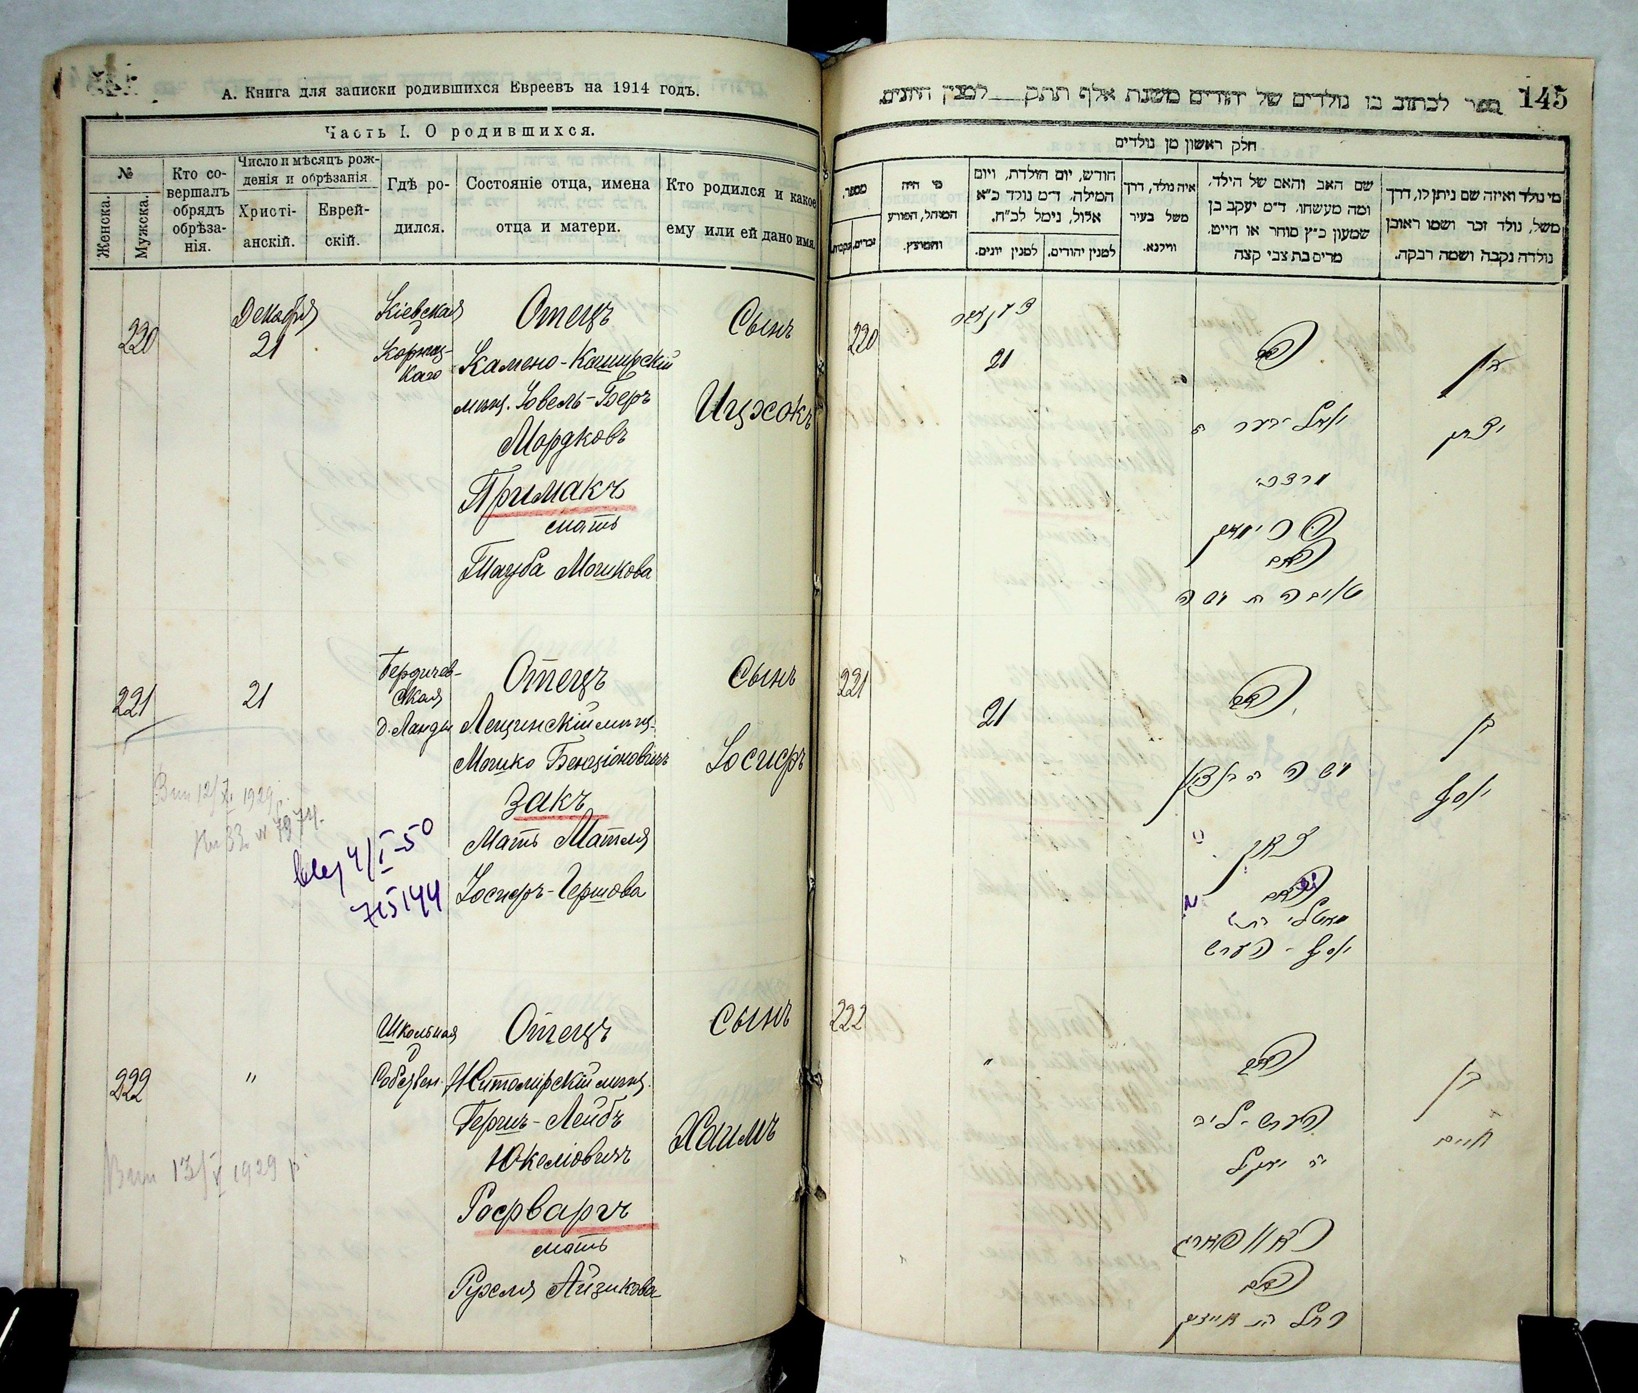 А. Книга для записки родившихся Евреевъ на 1914 годъ.
Часть I. О родившихся.
№
Женска.
Мужска.
Кто совершалъ обрядъ обрѣзанія.
Число и мѣсяцъ рожденія и обрѣзанія
Христіанскій.
Еврейскій.
Гдѣ родился.
Состояніе отца, имена отца и матери.
Кто родился и какое ему или ей дано имя.
220
Декабря
21
Кіевская
Отецъ
Камено-Каширскій
мѣщ. Іовель-Беръ
Мордковъ
Примакъ
мать
Тауба Мошкова
Сынъ
Ицхокъ
221
21
Бердичев-
ская
д. Ланды
Отецъ
Лещинскій мѣщ.
Мошко Бенціоновичъ
Закъ
Мать Матля
Іосифъ-Гершова
Сынъ
Іосифъ
1929
4/I-50
715144
222
"
Школьная
д
Собствен.
Отецъ
Житомірскій мѣщ.
Гершъ-Лейбъ
Юкелiовичъ
Росфваргъ
мать
Рухля Айзикова
Сынъ
Хаимъ
13/V 1929 р
145
ספר לכתוב בו נולדים של יהודים משנת אלף תתק לסנין היונים.
חלק ראשון מן נולדים
מספר.
זכרים.
נקבות.
מי היה המוהל, הפורע והמוצץ.
חודש, יום הולדת, ויום המילה, ד״מ נולד כ״א אלול, נימל לכ״ח.
למנין יונים.
למנין יהודים.
איה נולד, דרך משל בעיר ווילנא.
שם האב והאם של הילד, ומה מעשהו, ד״מ יעקב בן שמעון כ״ץ סוחר או חייט, מרים בת צבי קצה
מי נולד ואיזה שם ניתן לו, דרך משל, נולד זכר ושמו ראובן נולדה נקבה ושמה רבקה.
220
21
האב
מרדכי
האם
בן
יצחק
221
21
האב
משה
זאק
האם
יאסף - הערש
בן
יאסף
222
"
האב
הערש-ליב
האם
רחל בת אייזיק
בן
חיים